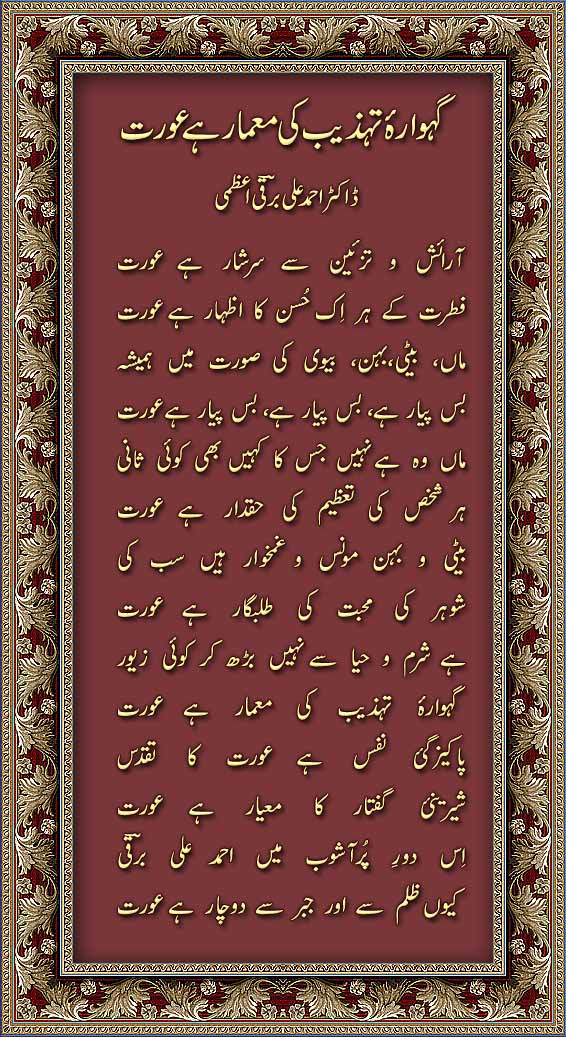 گہوارۂ تہذیب کی معمار ہے عورت
ڈاکٹر احمد علی برقیؔ اعظمی
آرائش و تزئین سے سرشار ہے عورت
فطرت کے ہر اِک حُسن کا اظہار ہے عورت
ماں، بیٹی، بہن، بیوی کی صورت میں ہمیشہ
بس پیار ہے، بس پیار ہے، بس پیار ہے عورت
ماں وہ ہے نہیں جس کا کہیں بھی کوئی ثانی
ہر شخص کی تعظیم کی حقدار ہے عورت
بیٹی و بہن مونس و غمخوار ہیں سب کی
شوہر کی محبت کی طلبگار ہے عورت
ہے شرم و حیا سے نہیں بڑھ کر کوئی زیور
گہوارۂ تہذیب کی معمار ہے عورت
پاکیزگیٔ نفس ہے عورت کا تقدّس
شیرینیٔ گفتار کا معیار ہے عورت
اِس دورِ پُرآشوب میں احمد علی برقیؔ
کیوں ظلم سے اور جبر سے دوچار ہے عورت